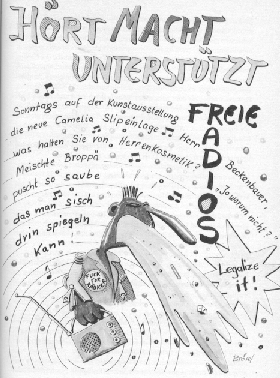 HÖRT MACHT
UNTERSTÜTZT
FREIE
RADIOS
Sonntags auf der Kunstausstellung
die neue Camelia Slipeinlage
Herr Beckenbauer,
was halten Sie von Herrenkosmetik?
Jo warum nicht?
Meischte Broppä
puscht so saube
das man sisch
drin spiegeln
kann
Legalize
it!